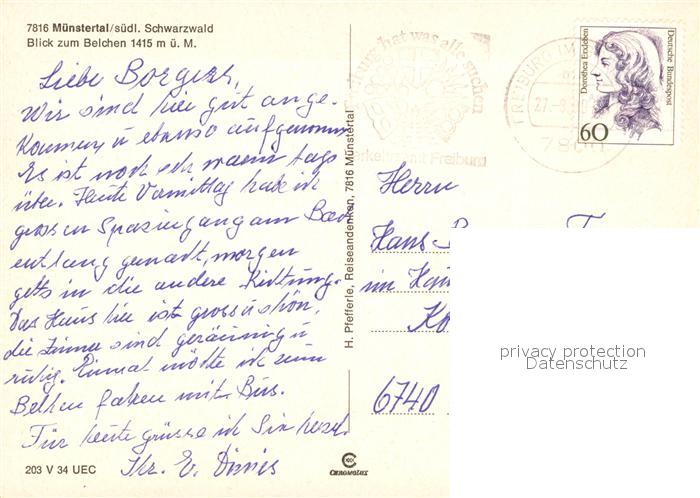 7816 Münstertal/südl. Schwarzwald
Blick zum Belchen 1415 m ü. M.
Liebe Borgers,
Wir sind hier gut ange-
kommen u ebenso aufgenommen
Es ist noch sehr warm tags
über. Heute Vormittag habe ich
grossen Spaziergang am Bach
entlang gemacht, morgen
gehts in die andere Richtung.
Das Haus hier ist gross u schön,
die Zimmer sind geräumig u
ruhig. Einmal möchte ich zum
Belchen fahren mit Bus.
Für heute grüsse ich Sie herzl.
Ihr. E.
203 V 34 UEC
H. Pfefferle, Reiseandenken, 7816 Münstertal
CHROMOLUX
hat was alle suchen
mit Freiburg
FREIBURG IM
27.-9
Dorothea Erxleben
Deutsche Bundespost
60
Herrn
Hans-
im
6740
privacy protection
Datenschutz